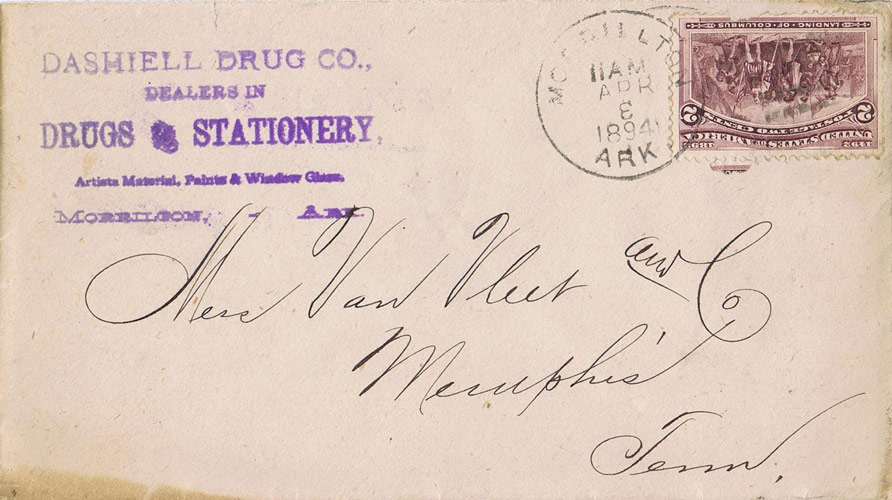 DASHIELL DRUG CO.,
DEALERS IN
DRUGS & STATIONERY,
Artists Material, Paints & Window Glass.
MORRILTON, - ARK.
MORRILLTON
11 AM
APR
8
1894
ARK
LANDING OF COLUMBUS
2 2
POSTAGE TWO CENTS
1892
Mess Van Vleet and Co
Memphis
Tenn.